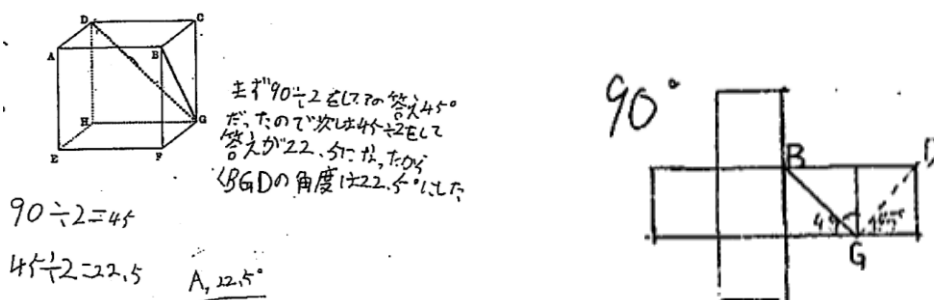 D
C
A
B
H
G
E
F
まず90÷2をしてその答え45°
だったので次は45÷2をして
答えが22.5になったから
∠BGDの角度は22.5°にした
90÷2=45
45÷2=22.5
A, 22.5°
90°
B
D
45
45°
G